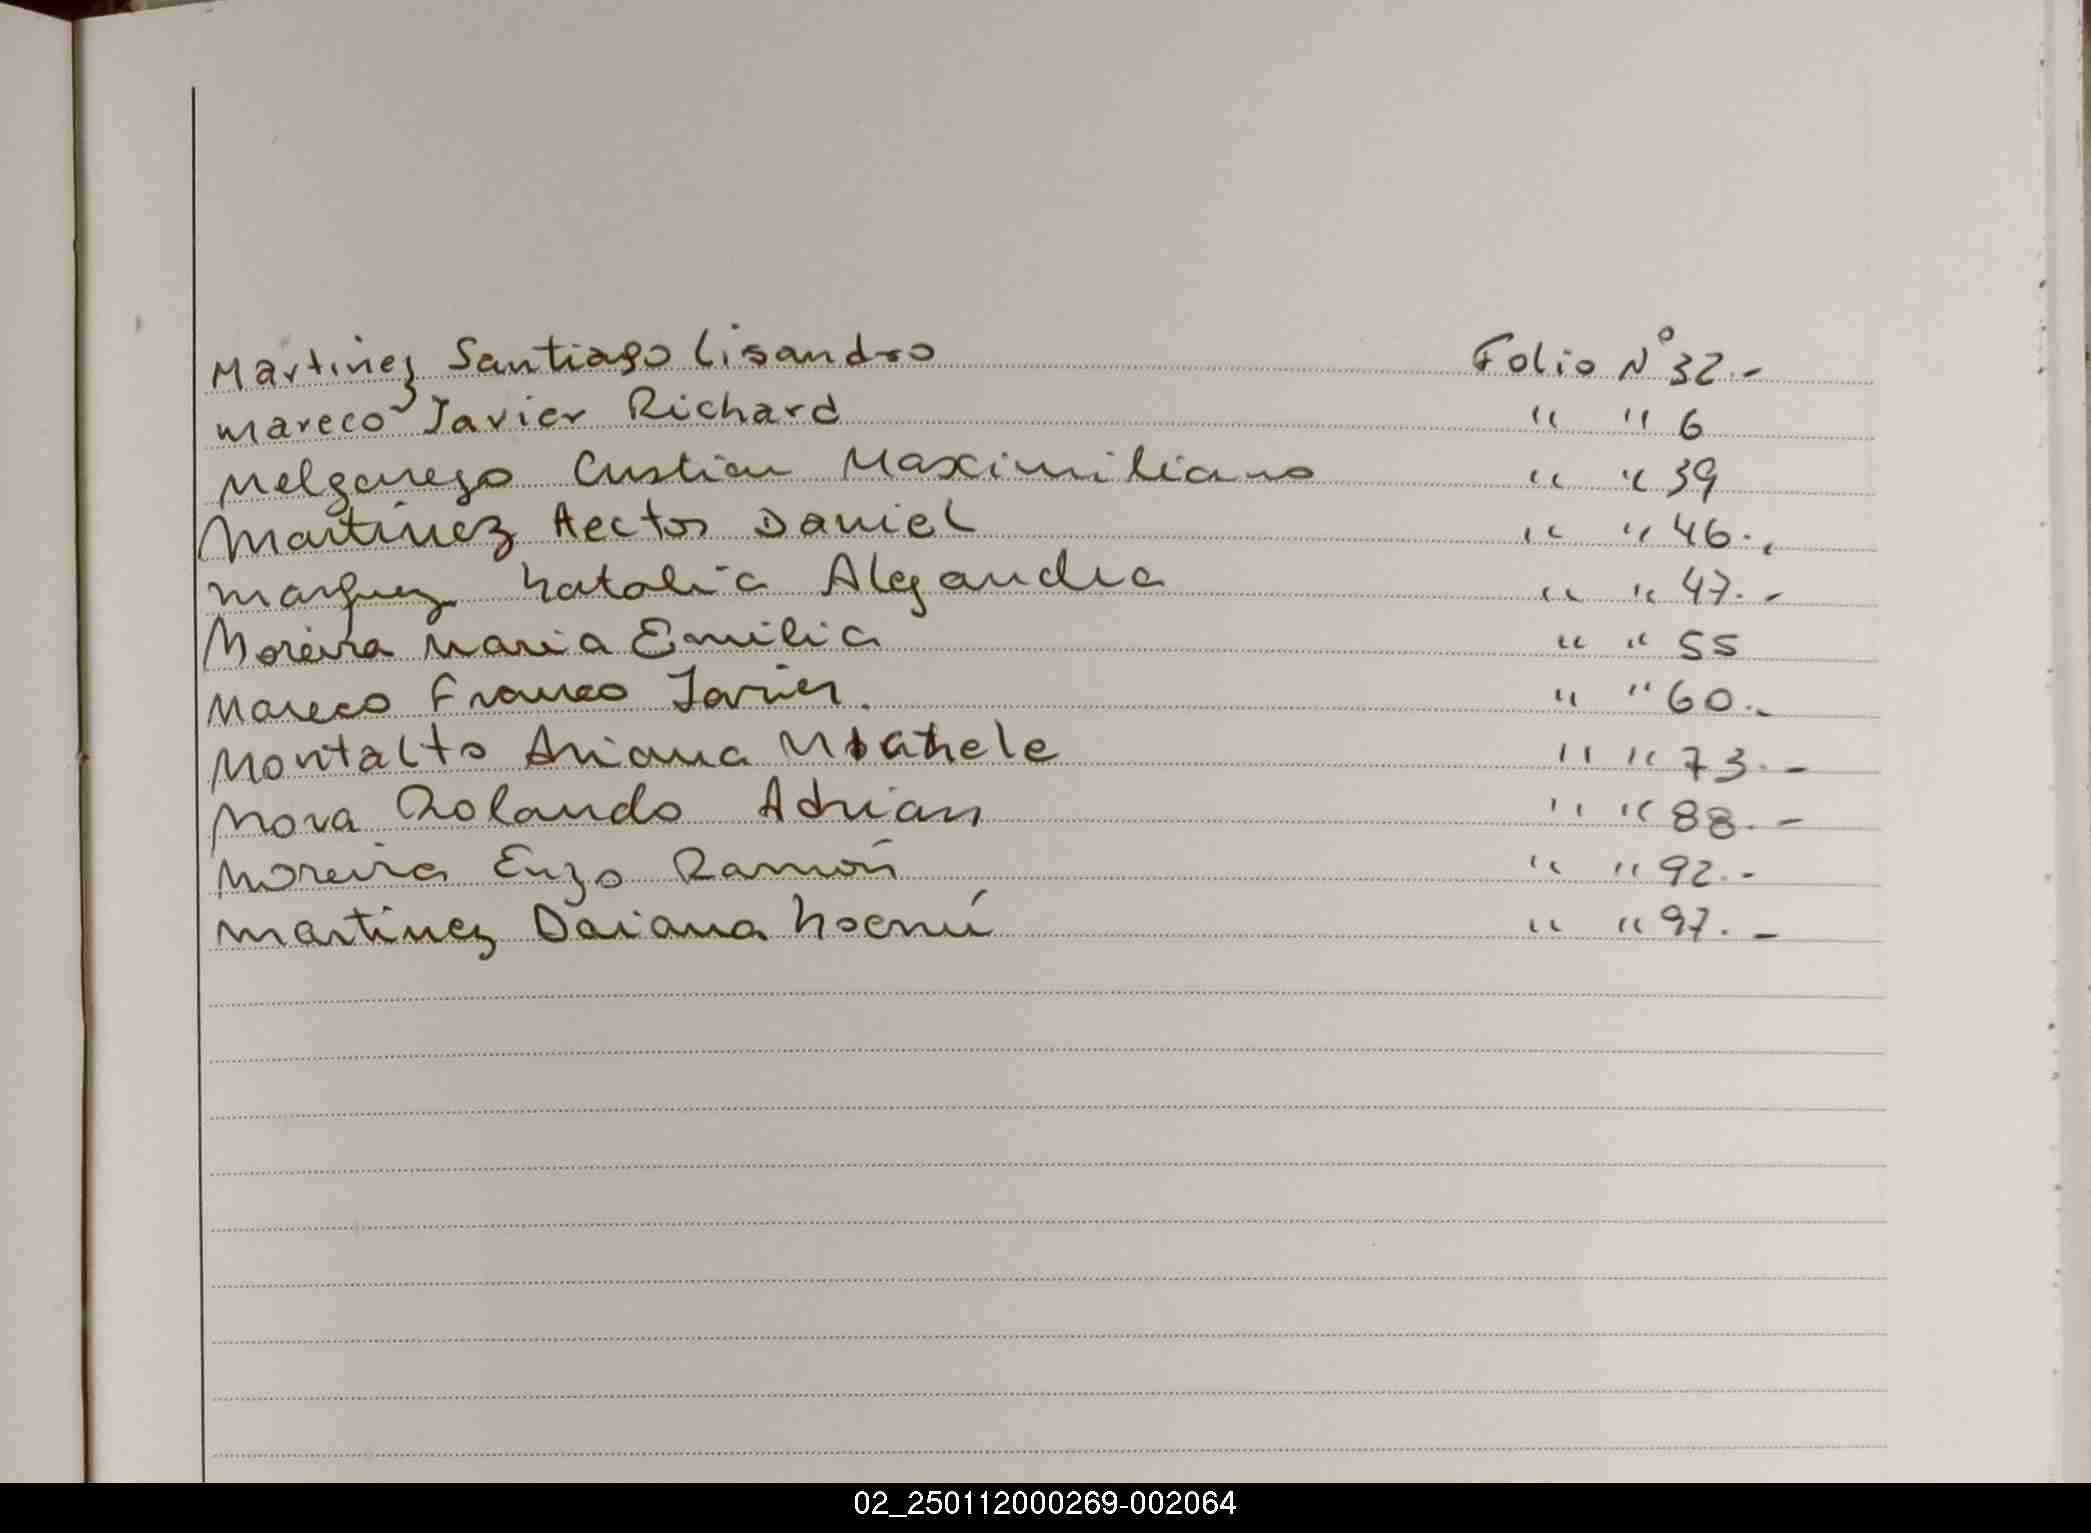 Martinez Santiago Lisandro Folio N° 32.-
Mareco Javier Richard " " 6
Melgarejo Cristian Maximiliano " " 39
Martinez Hector Daniel " " 46.-
Marquez Natalia Alejandra " " 47.-
Moreira Maria Emilia " " 55
Mareco Franco Javier. " " 60.-
Montalto Ariana " " 73.-
Mora Rolando Adrian " " 88.-
Moreira Enzo Ramón " " 92.-
Martinez Daiana Noemí " " 97.-
02_250112000269-002064